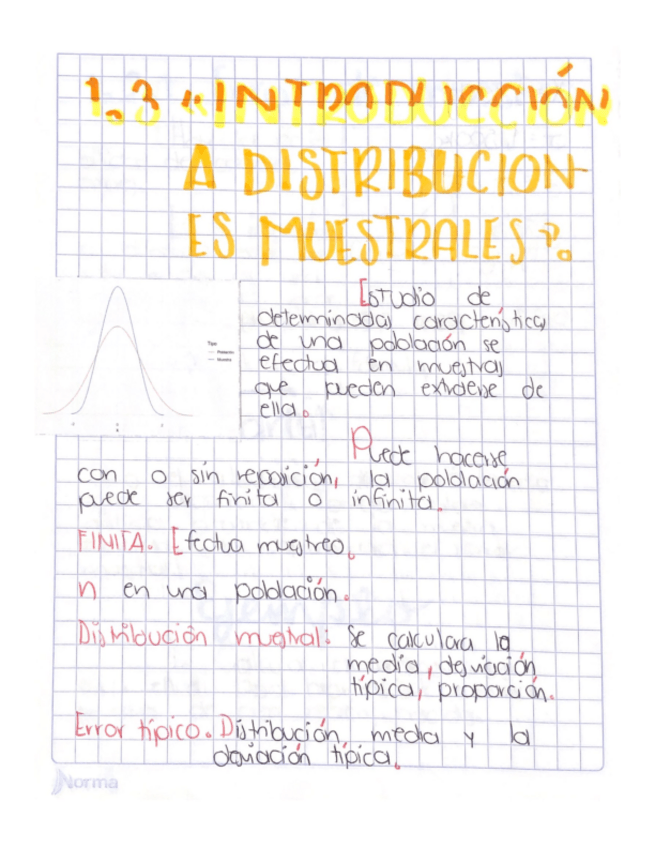 1.3 "INTRODUCCIÓN
A DISTRIBUCION
ES MUESTRALES".
Tipo
Población
Muestra
Estudio de
determinadas características
de una población se
efectua en muestras
que pueden extraerse de
ella.
Puede hacerse
con o sin reposición, la pololación
puede ser finita o infinita.
FINITA. Efectua muestreo.
n en una población.
Distribución muestral: Se calculara la
media, desviación
típica, proporción.
Error típico. Distribución, media y la
desviación típica.
Norma